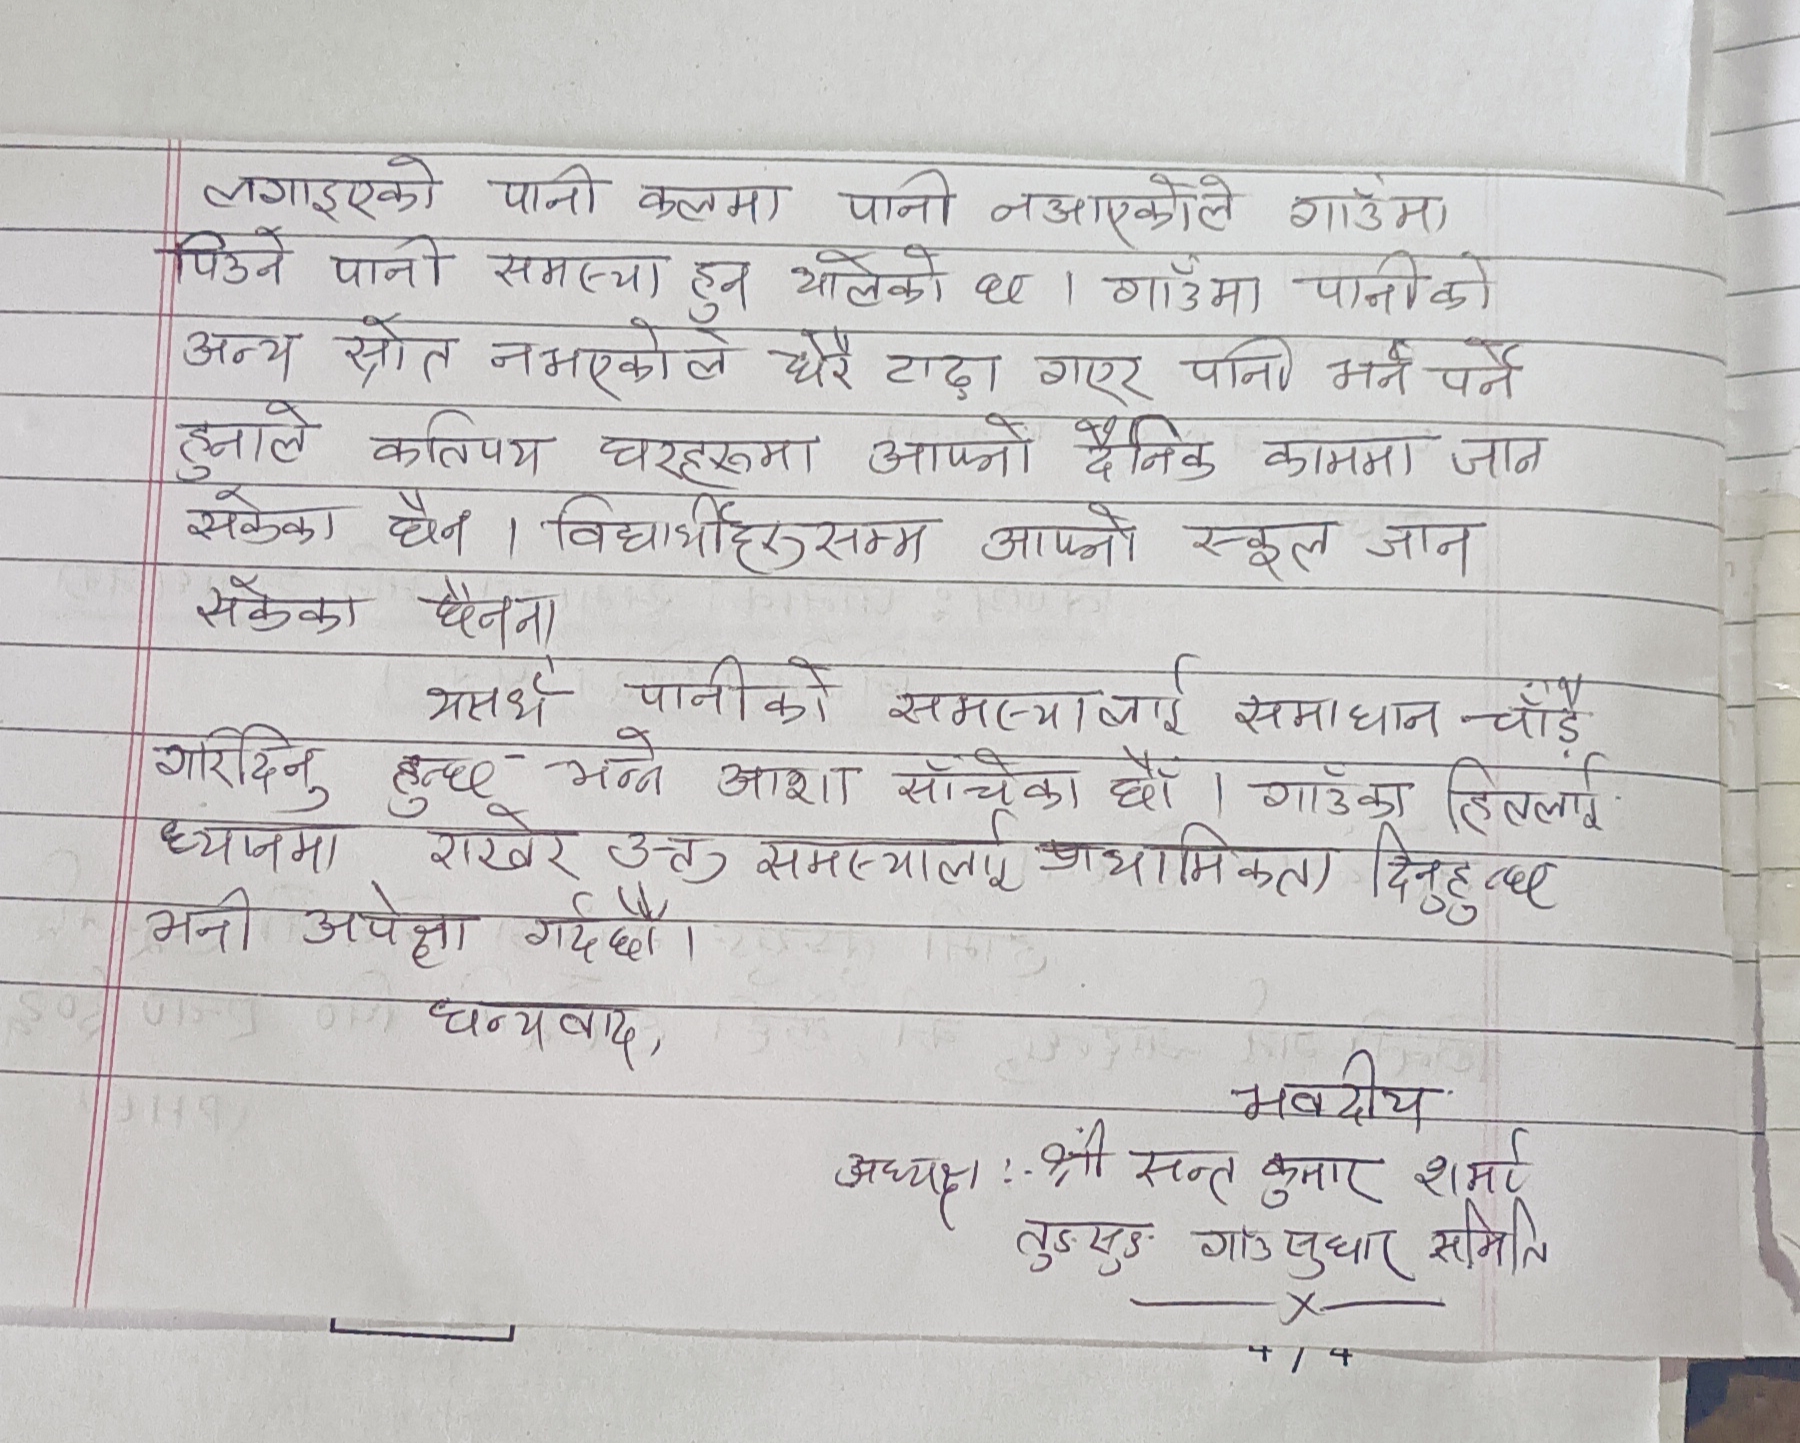 लगाइएको पानी कलमा पानी नआएकोले गाउँमा
पिउने पानी समस्या हुन थालेको छ । गाउँमा पानीको
अन्य स्रोत नभएकोले धेरै टाढा गएर पानी भर्न पर्ने
हुनाले कतिपय घरहरूमा आफ्नो दैनिक काममा जान
सकेका छैन । विद्यार्थीहरुसम्म आफ्नो स्कूल जान
सकेका छैनन।
यसर्थ पानीको समस्यालाई समाधान चाँडै
गरिदिनु हुन्छ भन्ने आशा साँचेका छौं । गाउँका हितलाई
ध्यानमा राखेर उक्त समस्यालाई प्राथमिकता दिनुहुन्छ
भनी अपेक्षा गर्दछौं ।
धन्यवाद,
भवदीय
अध्यक्ष :- श्री सन्त कुमार शर्मा
तुङसुङ गाउ सुधार समिति
x
4 / 4